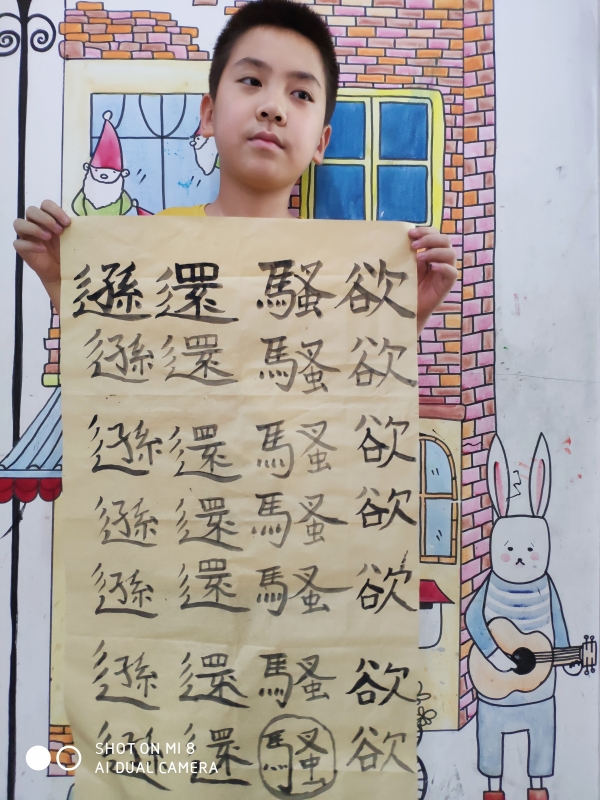 遜還騷欲
遜還騷欲
遜還騷欲
遜還騷欲
遜還騷欲
遜還騷欲
遜還騷欲
SHOT ON MI 8
AI DUAL CAMERA